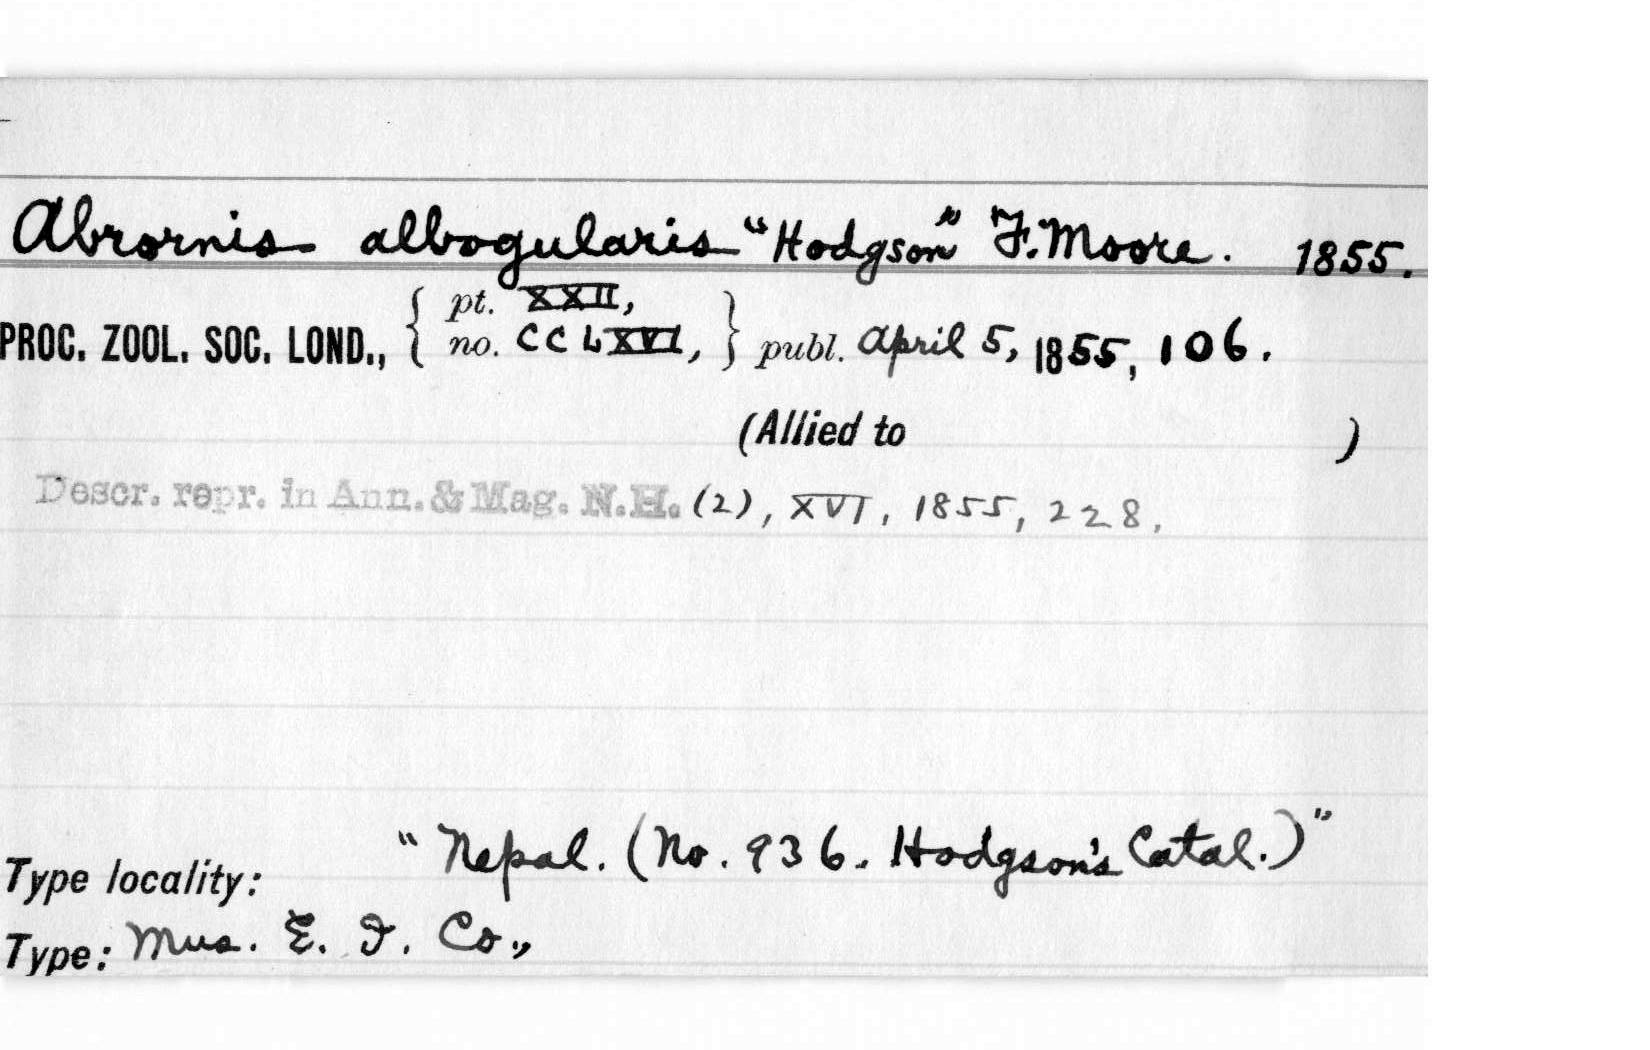 Abrornis albogularis "Hodgson" F. Moore. 1855.
PROC. ZOOL. SOC. LOND., { pt. XXII, no. CCLXVI, } publ. April 5, 1855, 106.
(Allied to )
Descr. repr. in Ann. & Mag. N.H. (2), XVI, 1855, 228.
Type locality: "Nepal. (No. 936. Hodgson's Catal.)"
Type: Mus. E. I. Co.,